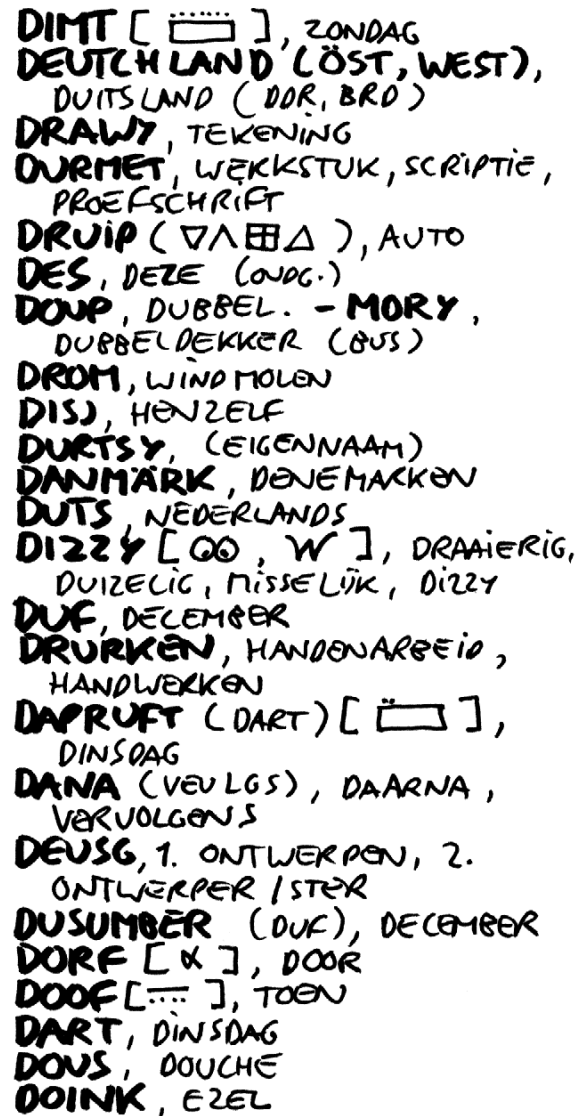 DIMT [ ], ZONDAG
DEUTCHLAND (ÖST, WEST),
DUITSLAND (DDR, BRD)
DRAWY, TEKENING
OURMET, WERKSTUK, SCRIPTIE,
PROEFSCHRIFT
DRUIP (▽Λ⊞△), AUTO
DES, DEZE (OVDG.)
DOUP, DUBBEL. - MORY,
DUBBELDEKKER (BUS)
DROM, WINDMOLEN
DISJ, HENZELF
DURTSY, (EIGENNAAM)
DANMÄRK, DENEMARKEN
DUTS, NEDERLANDS
DIZZY [ , W ], DRAAIERIG,
DUIZELIG, MISSELIJK, DIZZY
DUF, DECEMBER
DRURKEN, HANDENARBEID,
HANDWERKEN
DAPRUFT (DART) [ ],
DINSDAG
DANA (VEVLGS), DAARNA,
VERVOLGENS
DEUSG, 1. ONTWERPEN, 2.
ONTWERPER / STER
DUSUMBER (DUF), DECEMBER
DORF [ α ], DOOR
DOOF [ ], TOEN
DART, DINSDAG
DOUS, DOUCHE
DOINK, EZEL